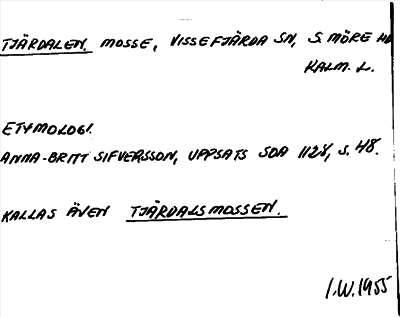 TJÄRDALEN. MOSSE, VISSEFJÄRDA SN, S. MÖRE HD
KALM. L.
ETYMOLOGI.
ANNA-BRITT SIFVERSSON, UPPSATS SOA 1128, S. 48.
KALLAS ÄVEN TJÄRDALSMOSSEN.
I.W. 1955